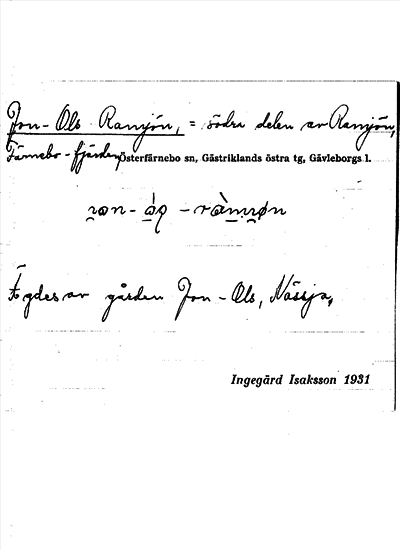 Jon-Ols Ramsjön, = södra delen av Ramsjön,
Färnebo-fjärden, Österfärnebo sn, Gästriklands östra tg, Gävleborgs l.
Ägdes av gården Jon-Ols, Nässja,
Ingegärd Isaksson 1931